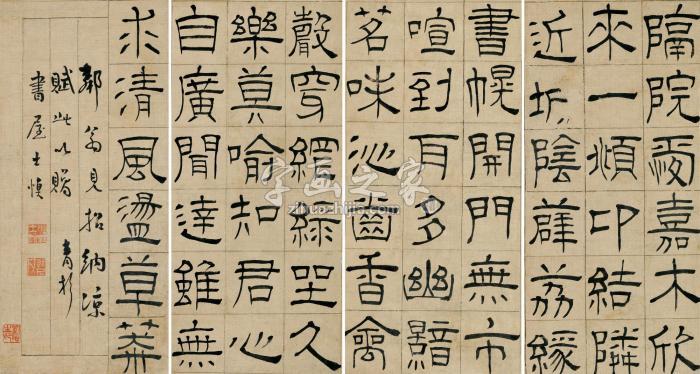 隔院嘉木欣
來一頫卬結隣
近陰薜荔緣
書幌開門無市
喧到耳多幽
茗味沁齒香禽
聲穿綠坐久
樂莫喻知君心
自廣聞達雖無
求清風盪草莽
鄰翁見招納涼
賦此以贈青杉
書屋士慎
字画之家
zihuazhijia.com